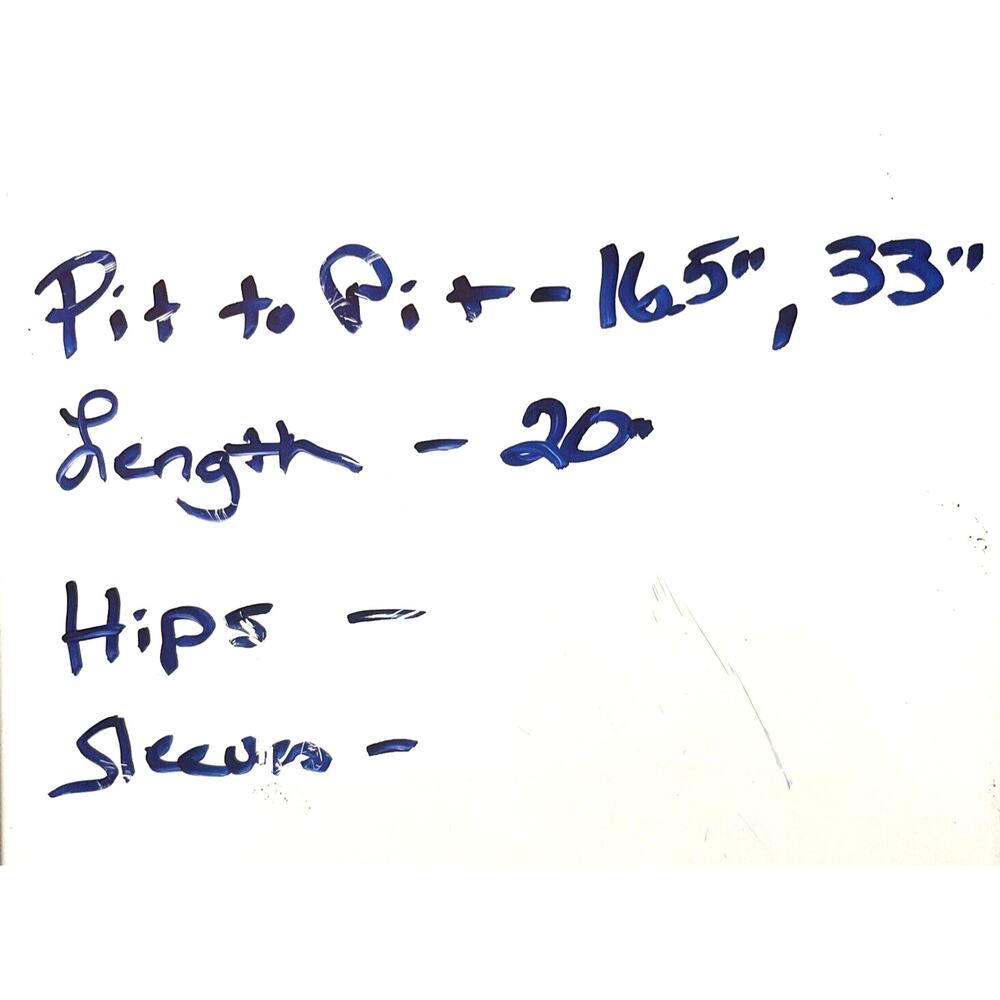 Pit to Pit - 16.5", 33"
Length - 20"
Hips -
Sleeves -